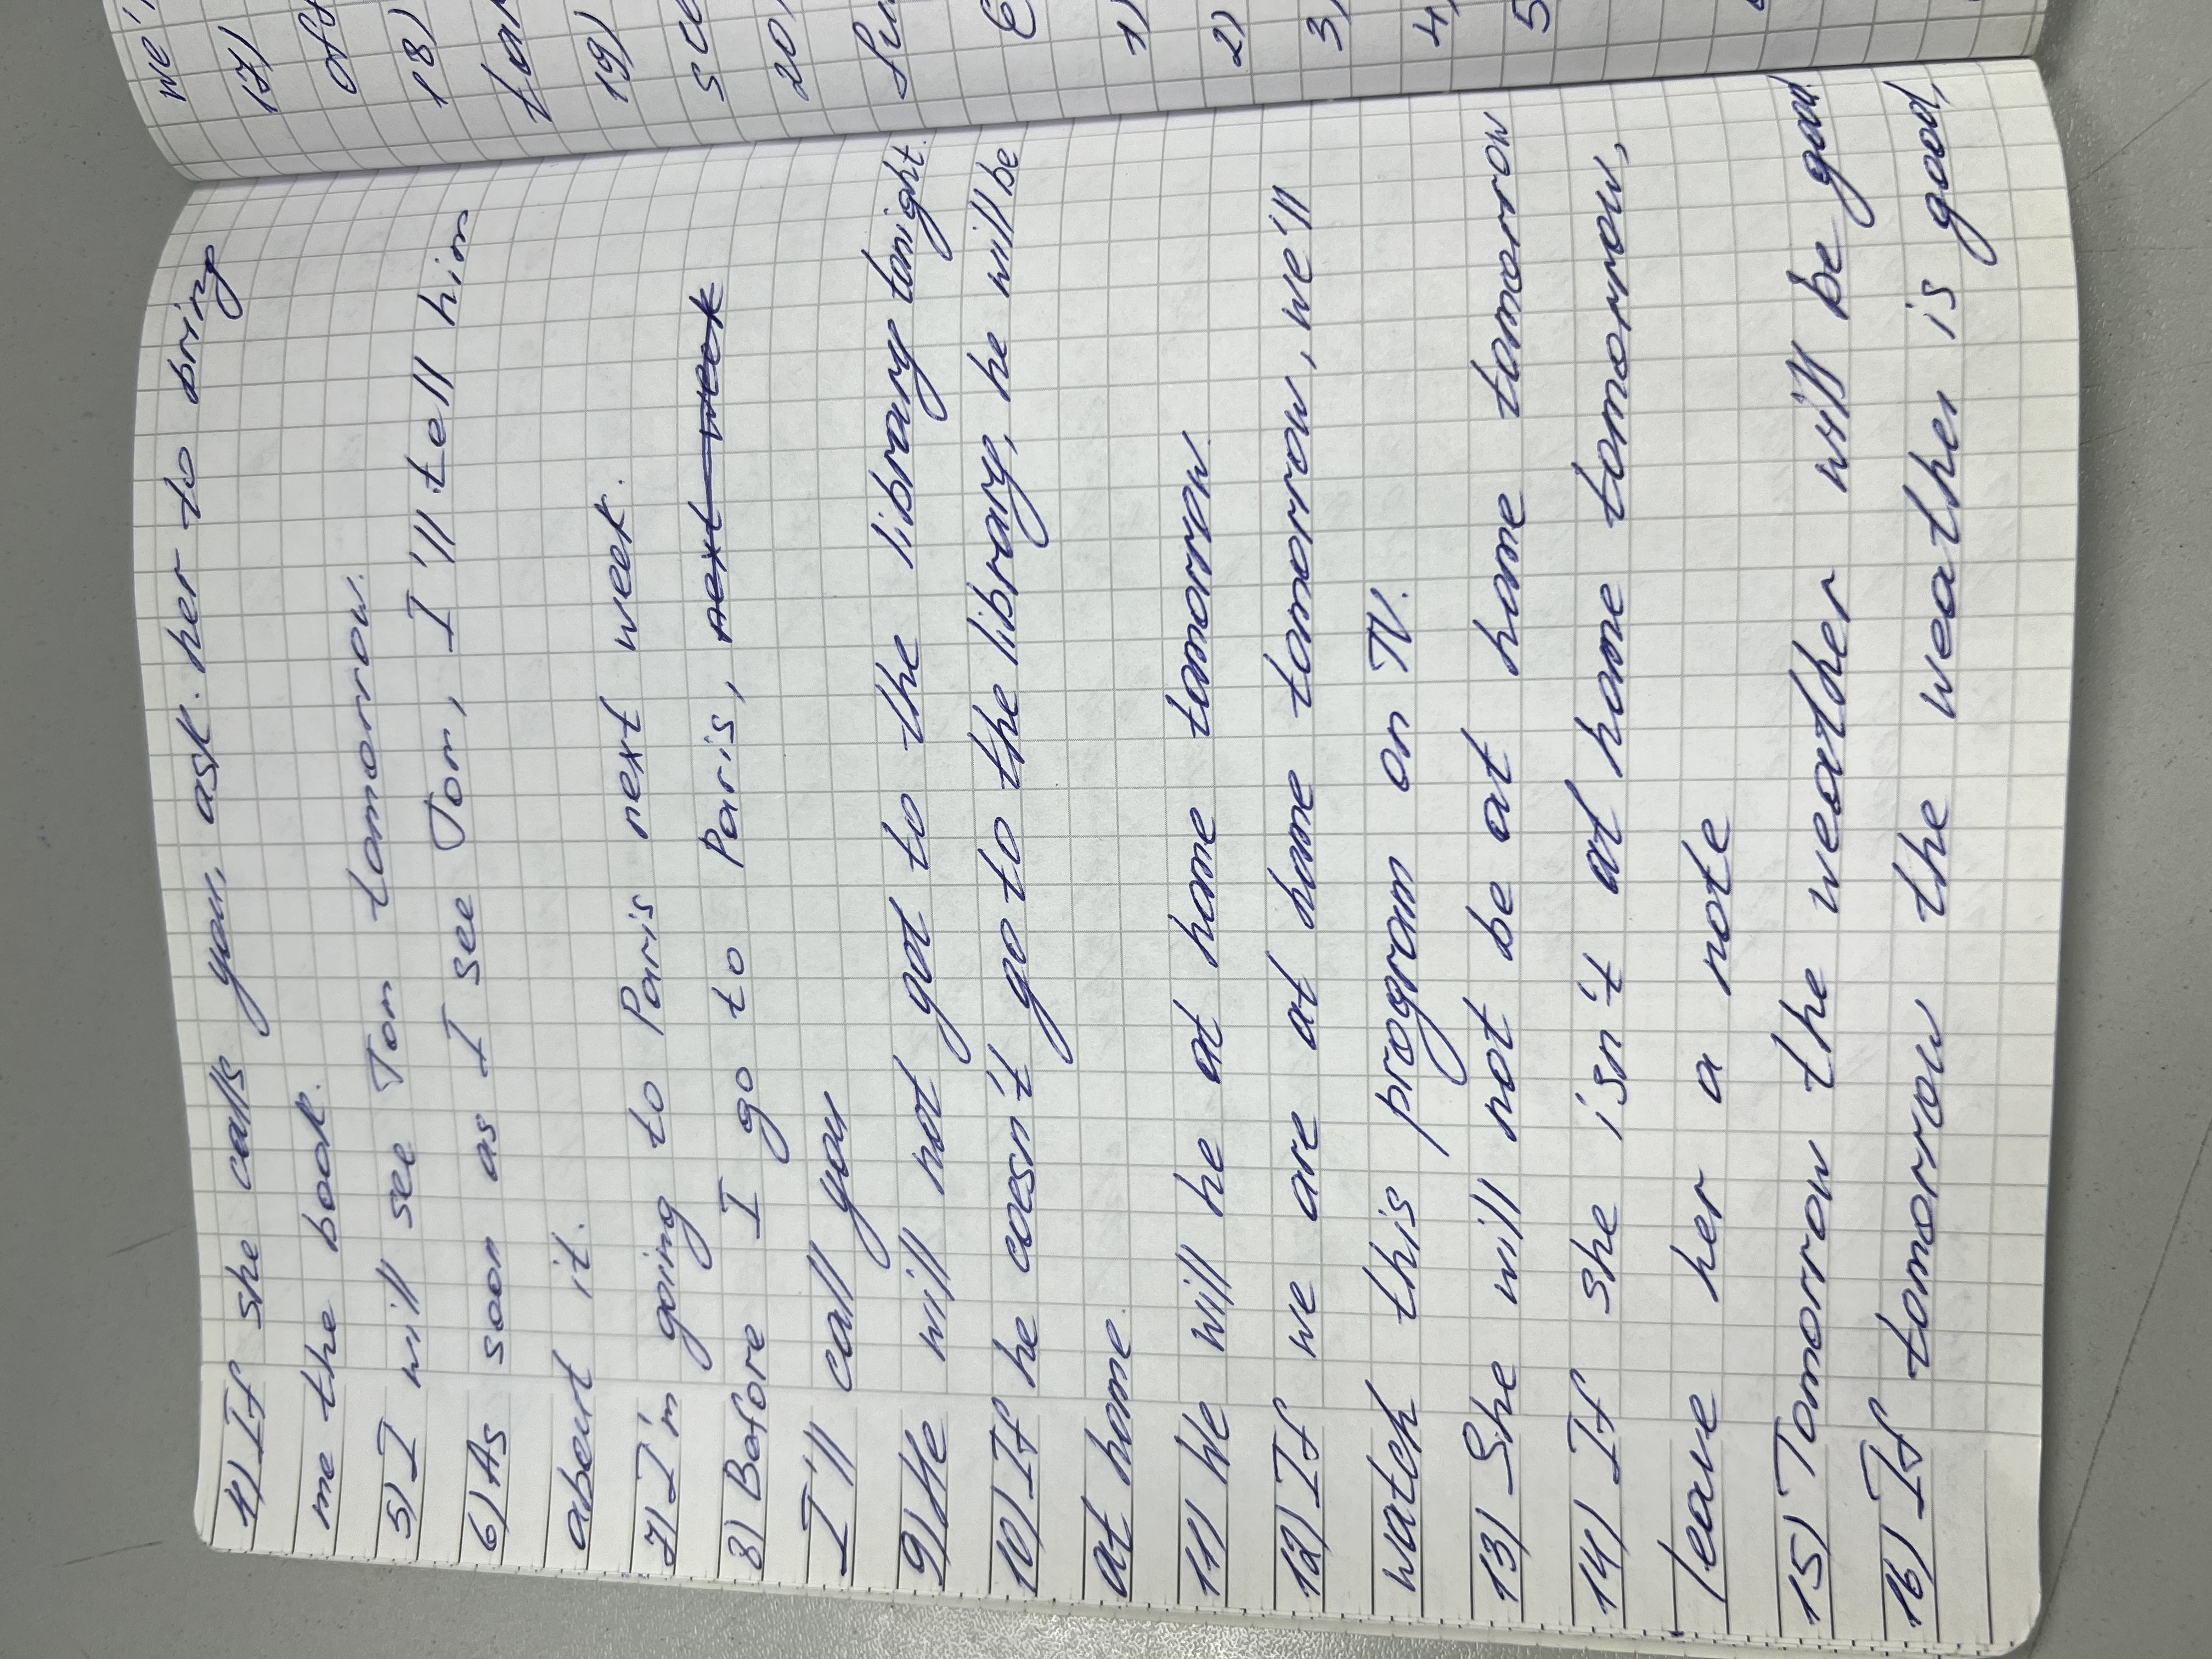 4) If she calls you, ask her to bring
me the book.
5) I will see Tom tomorrow.
6) As soon as I see Tom, I'll tell him
about it.
7) I'm going to Paris next week.
8) Before I go to Paris, next week
I'll call you
9) He will not got to the library tonight.
10) If he doesn't go to the library, he will be
at home.
11) We will he at home tomorrow.
12) If we are at home tomorrow, we'll
watch this program on TV.
13) She will not be at home tomorrow
14) If she isn't at home tomorrow,
leave her a note
15) Tomorrow the weather will be good
16) If tomorrow the weather is good,
we'
17)
off
18)
19)
20)
1)
2)
3)
4)
5